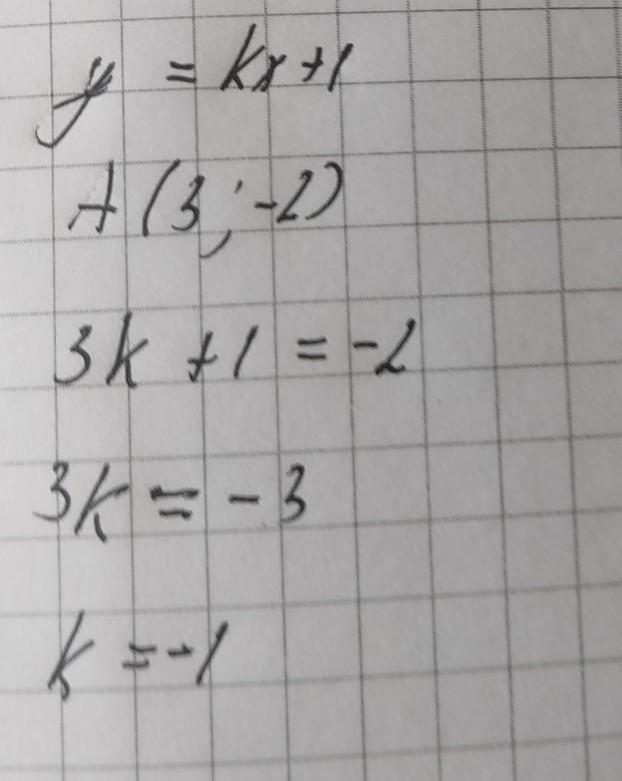 y = kx+1
A (3; -2)
3k +1 = -2
3k = -3
k = -1